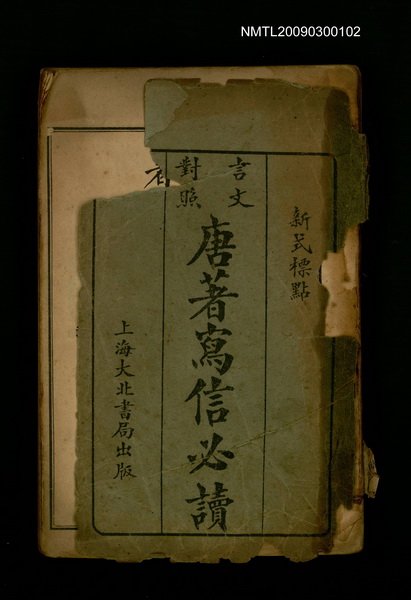 NMTL20090300102
新式標點
言文
對照
唐著寫信必讀
上海大北書局出版